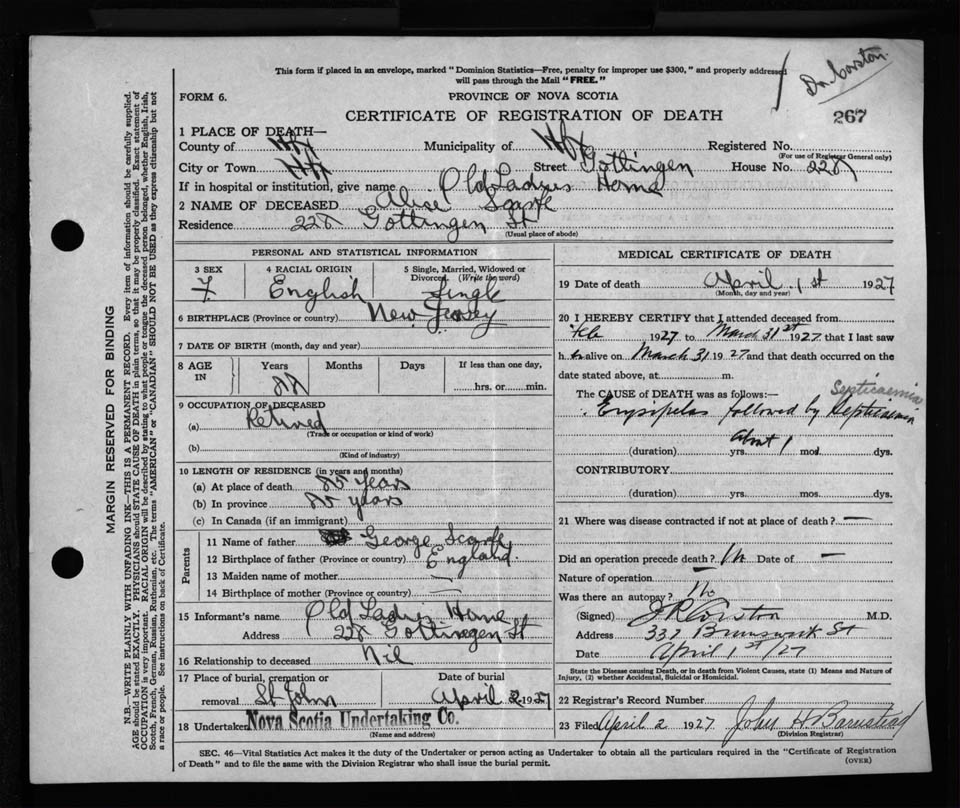 Dr. Corston
This form if placed in an envelope, marked "Dominion Statistics—Free, penalty for improper use $300," and properly addressed
will pass through the Mail "FREE."
FORM 6.
PROVINCE OF NOVA SCOTIA
CERTIFICATE OF REGISTRATION OF DEATH
267
1 PLACE OF DEATH—
County of Hfx Municipality of Hfx Registered No.
(For use of Registrar General only)
City or Town Hfx Street Gottingen House No. 228
If in hospital or institution, give name Old Ladies Home
2 NAME OF DECEASED Alise Scarfe
Residence 228 Gottingen St
(Usual place of abode)
PERSONAL AND STATISTICAL INFORMATION
3 SEX
F
4 RACIAL ORIGIN
English
5 Single, Married, Widowed or
Divorced (Write the word)
Single
6 BIRTHPLACE (Province or country) New Jersey
7 DATE OF BIRTH (month, day and year)
8 AGE
IN
Years Months Days
If less than one day,
hrs. or min.
9 OCCUPATION OF DECEASED
(a) Retired
(Trade or occupation or kind of work)
(b)
(Kind of industry)
10 LENGTH OF RESIDENCE (in years and months)
(a) At place of death years
(b) In province years
(c) In Canada (if an immigrant)
Parents
11 Name of father George Scarfe
12 Birthplace of father (Province or country) England
13 Maiden name of mother —
14 Birthplace of mother (Province or country) —
15 Informant's name Old Ladies Home
Address 228 Gottingen St
16 Relationship to deceased Nil
17 Place of burial, cremation or
removal St John
Date of burial
April 2 1927
18 Undertaker Nova Scotia Undertaking Co.
(Name and address)
MEDICAL CERTIFICATE OF DEATH
19 Date of death April 1st 1927
(Month, day and year)
20 I HEREBY CERTIFY that I attended deceased from
Feb 1927 to March 31st 1927 that I last saw
her alive on March 31 1927 and that death occurred on the
date stated above, at m.
The CAUSE OF DEATH was as follows:—
Septicaemia
Erysipelas followed by Septicaemia
(duration) yrs. about 1 mos. dys.
CONTRIBUTORY
(duration) yrs. mos. dys.
21 Where was disease contracted if not at place of death? —
Did an operation precede death? No Date of —
Nature of operation —
Was there an autopsy? No
(Signed) J R Corston M.D.
Address 337 Brunswick St
Date April 1st/27
State the Disease causing Death, or in death from Violent Causes, state (1) Means and Nature of
Injury, (2) whether Accidental, Suicidal or Homicidal.
22 Registrar's Record Number
23 Filed April 2 1927 John H Barnstead
(Division Registrar)
SEC. 46—Vital Statistics Act makes it the duty of the Undertaker or person acting as Undertaker to obtain all the particulars required in the "Certificate of Registration
of Death" and to file the same with the Division Registrar who shall issue the burial permit.
(OVER)
MARGIN RESERVED FOR BINDING
N.B.—WRITE PLAINLY WITH UNFADING INK—THIS IS A PERMANENT RECORD. Every item of information should be carefully supplied.
AGE should be stated EXACTLY. PHYSICIANS should STATE CAUSE OF DEATH in plain terms, so that it may be properly classified. Exact statement of
OCCUPATION is very important. RACIAL ORIGIN will be described by stating to what people or tongue the deceased person belonged, whether English, Irish,
Scotch, French, German, Russian, Ruthenian, etc. The terms "AMERICAN" or "CANADIAN" SHOULD NOT BE USED as they express citizenship but not
a race or people. See instructions on back of Certificate.